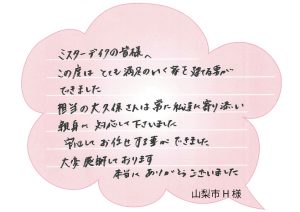 ミスターデイクの皆様へ
この度は とても満足のいく家を建てる事が
できました
担当の大久保さんは常に私達に寄り添い
親身に対応して下さいました
安心してお任せする事ができました
大変感謝しております
本当にありがとうございました
山梨市H様